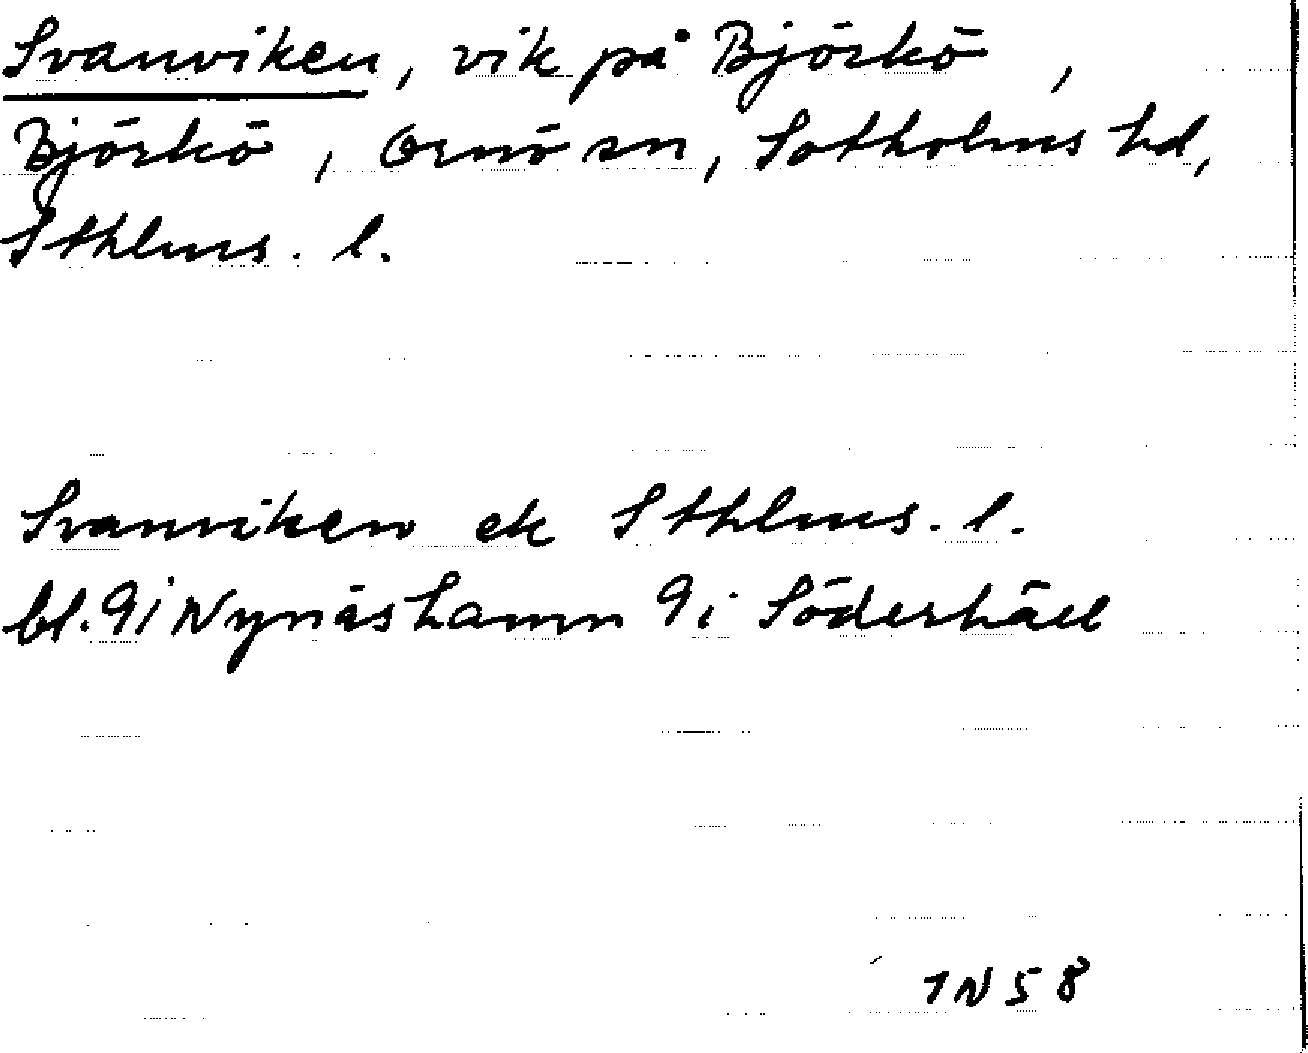 Svanviken, vik på Björkö ,
Björkö, Ornö sn, Sotholms hd,
Sthlms. l.
Svanviken ek Sthlms. l.
bl. 9i Nynäshamn 9i Söderhäll
IN 58